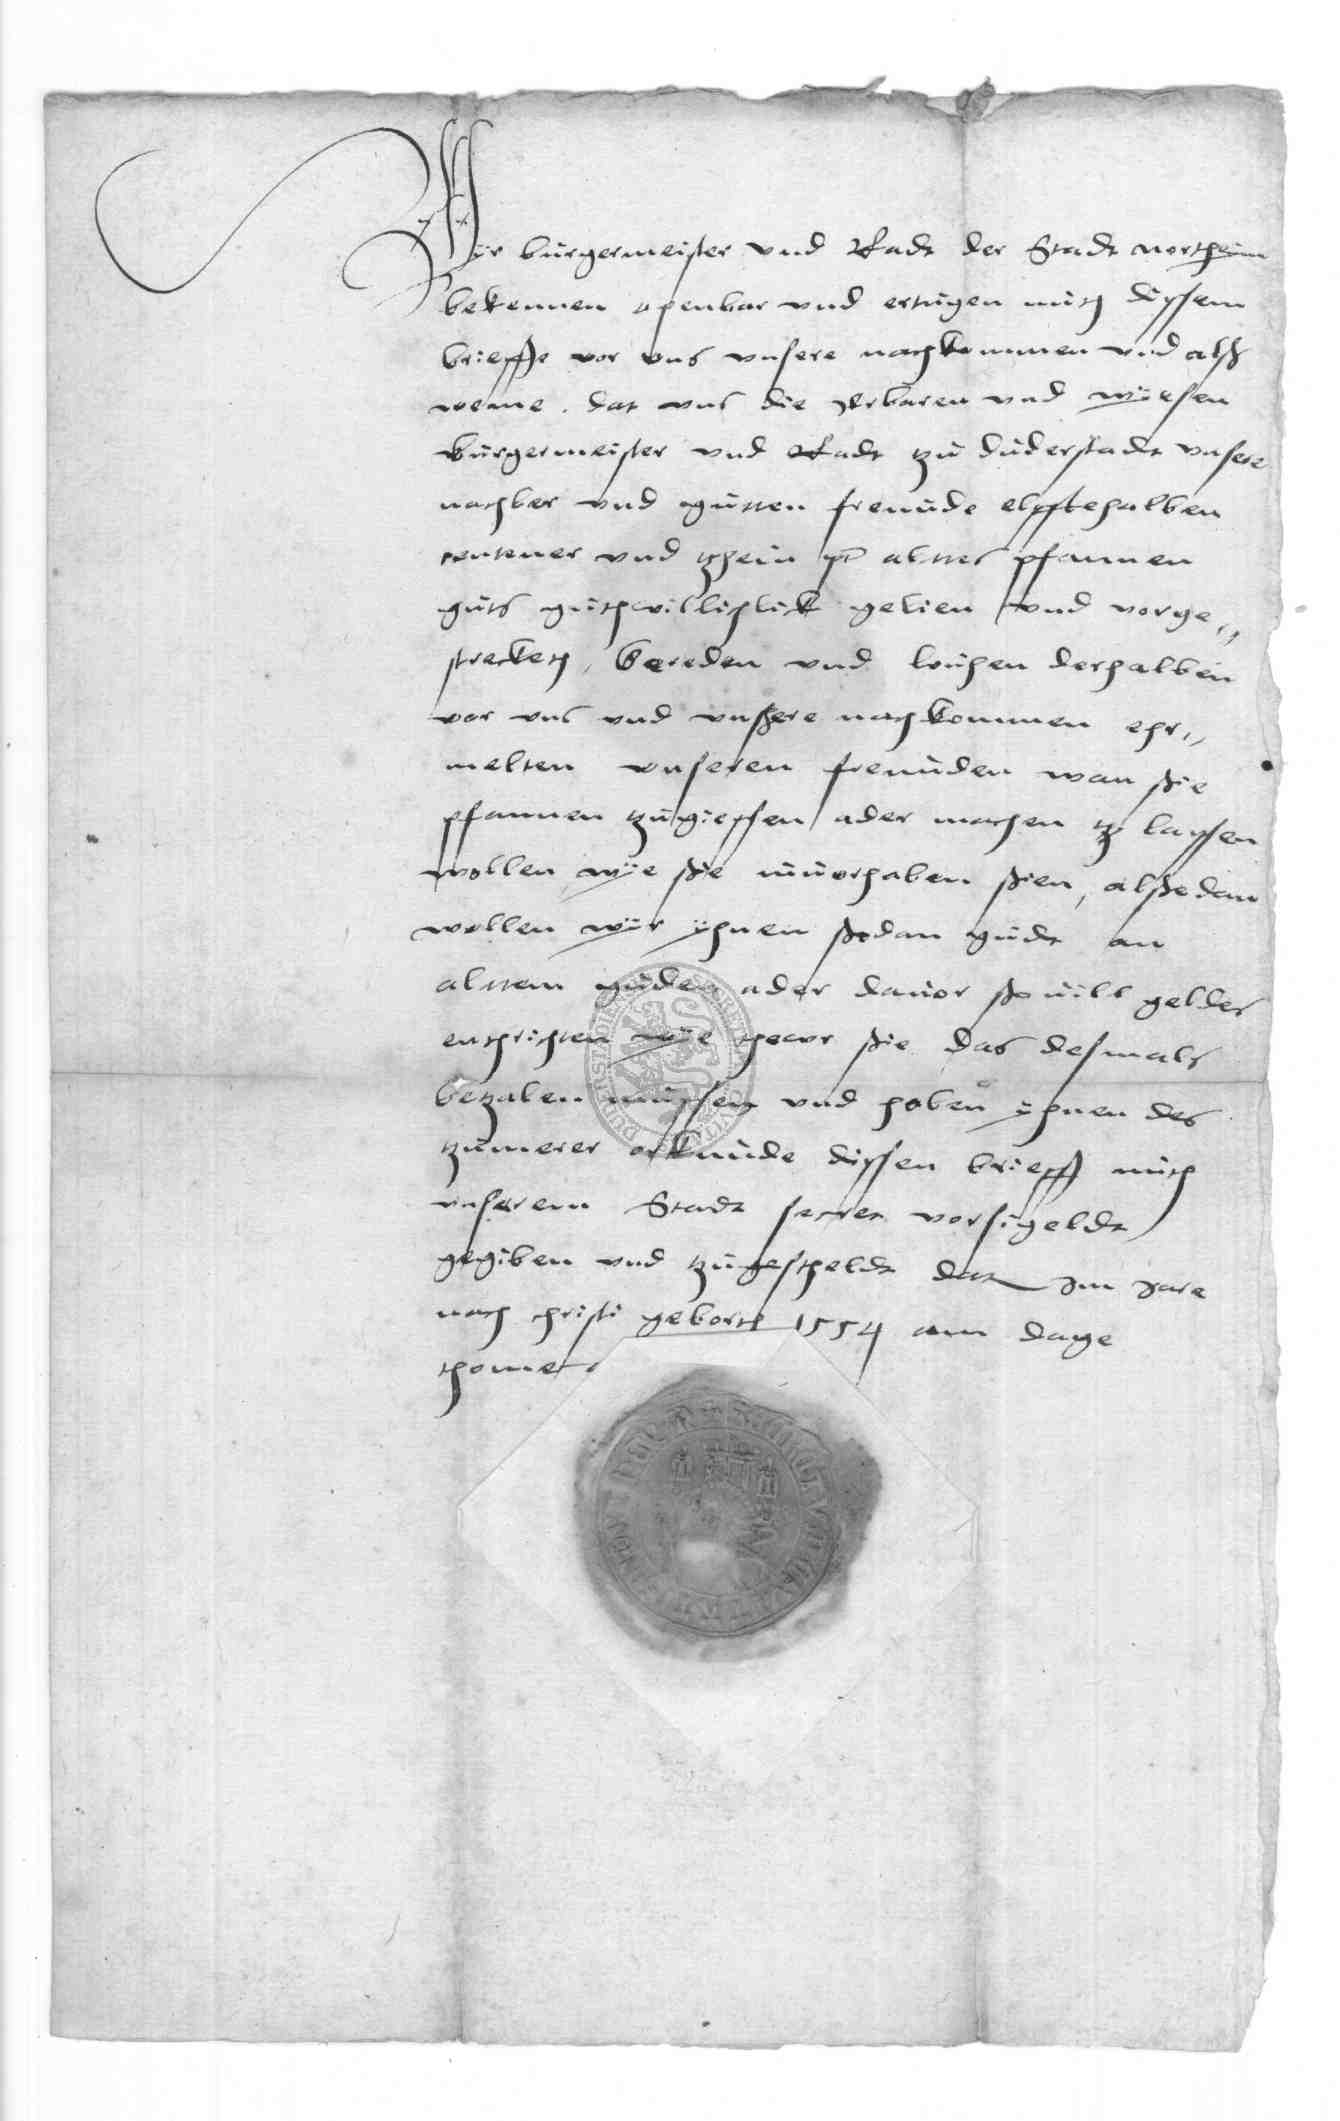 Wyr burgermeister vnd Radt der Stadt northeim
bekennen openbar vnd ertugen mith dyssem
brieffe vor vns vnsere nachkommen vnd alß
weme. dat vns die Erbaren vnd wyesen
burgermeister vnd Radt tzu duderstadt vnsere
nachber vnd gutten freunde elfftehalben
centener vnd tzhein altes pfannen
guts guthwillichlick gelien vnd vorge„
streckth, bereden vnd derhalben
vor vns vnd vnßere nachkommen ehr„
melten vnseren freunden wan ßie
pfannen tzugiessen ader machen tz layssen
wollen wye ßie inuorhaben ßien, alßedan
wollen wyr yhnen ßodan gudt an
altem guden ader dauor ßo uill geldes
enthrichten wye thewr ßie das desmals
betzalen mussen vnd haben yhnen des
tzumerer orkunde dissen brieff mith
vnserem Stadt secret vorsigeldt
gegiben vnd tzugestheldt dat Im Jare
nach christi geborth 1554 am dage
thome